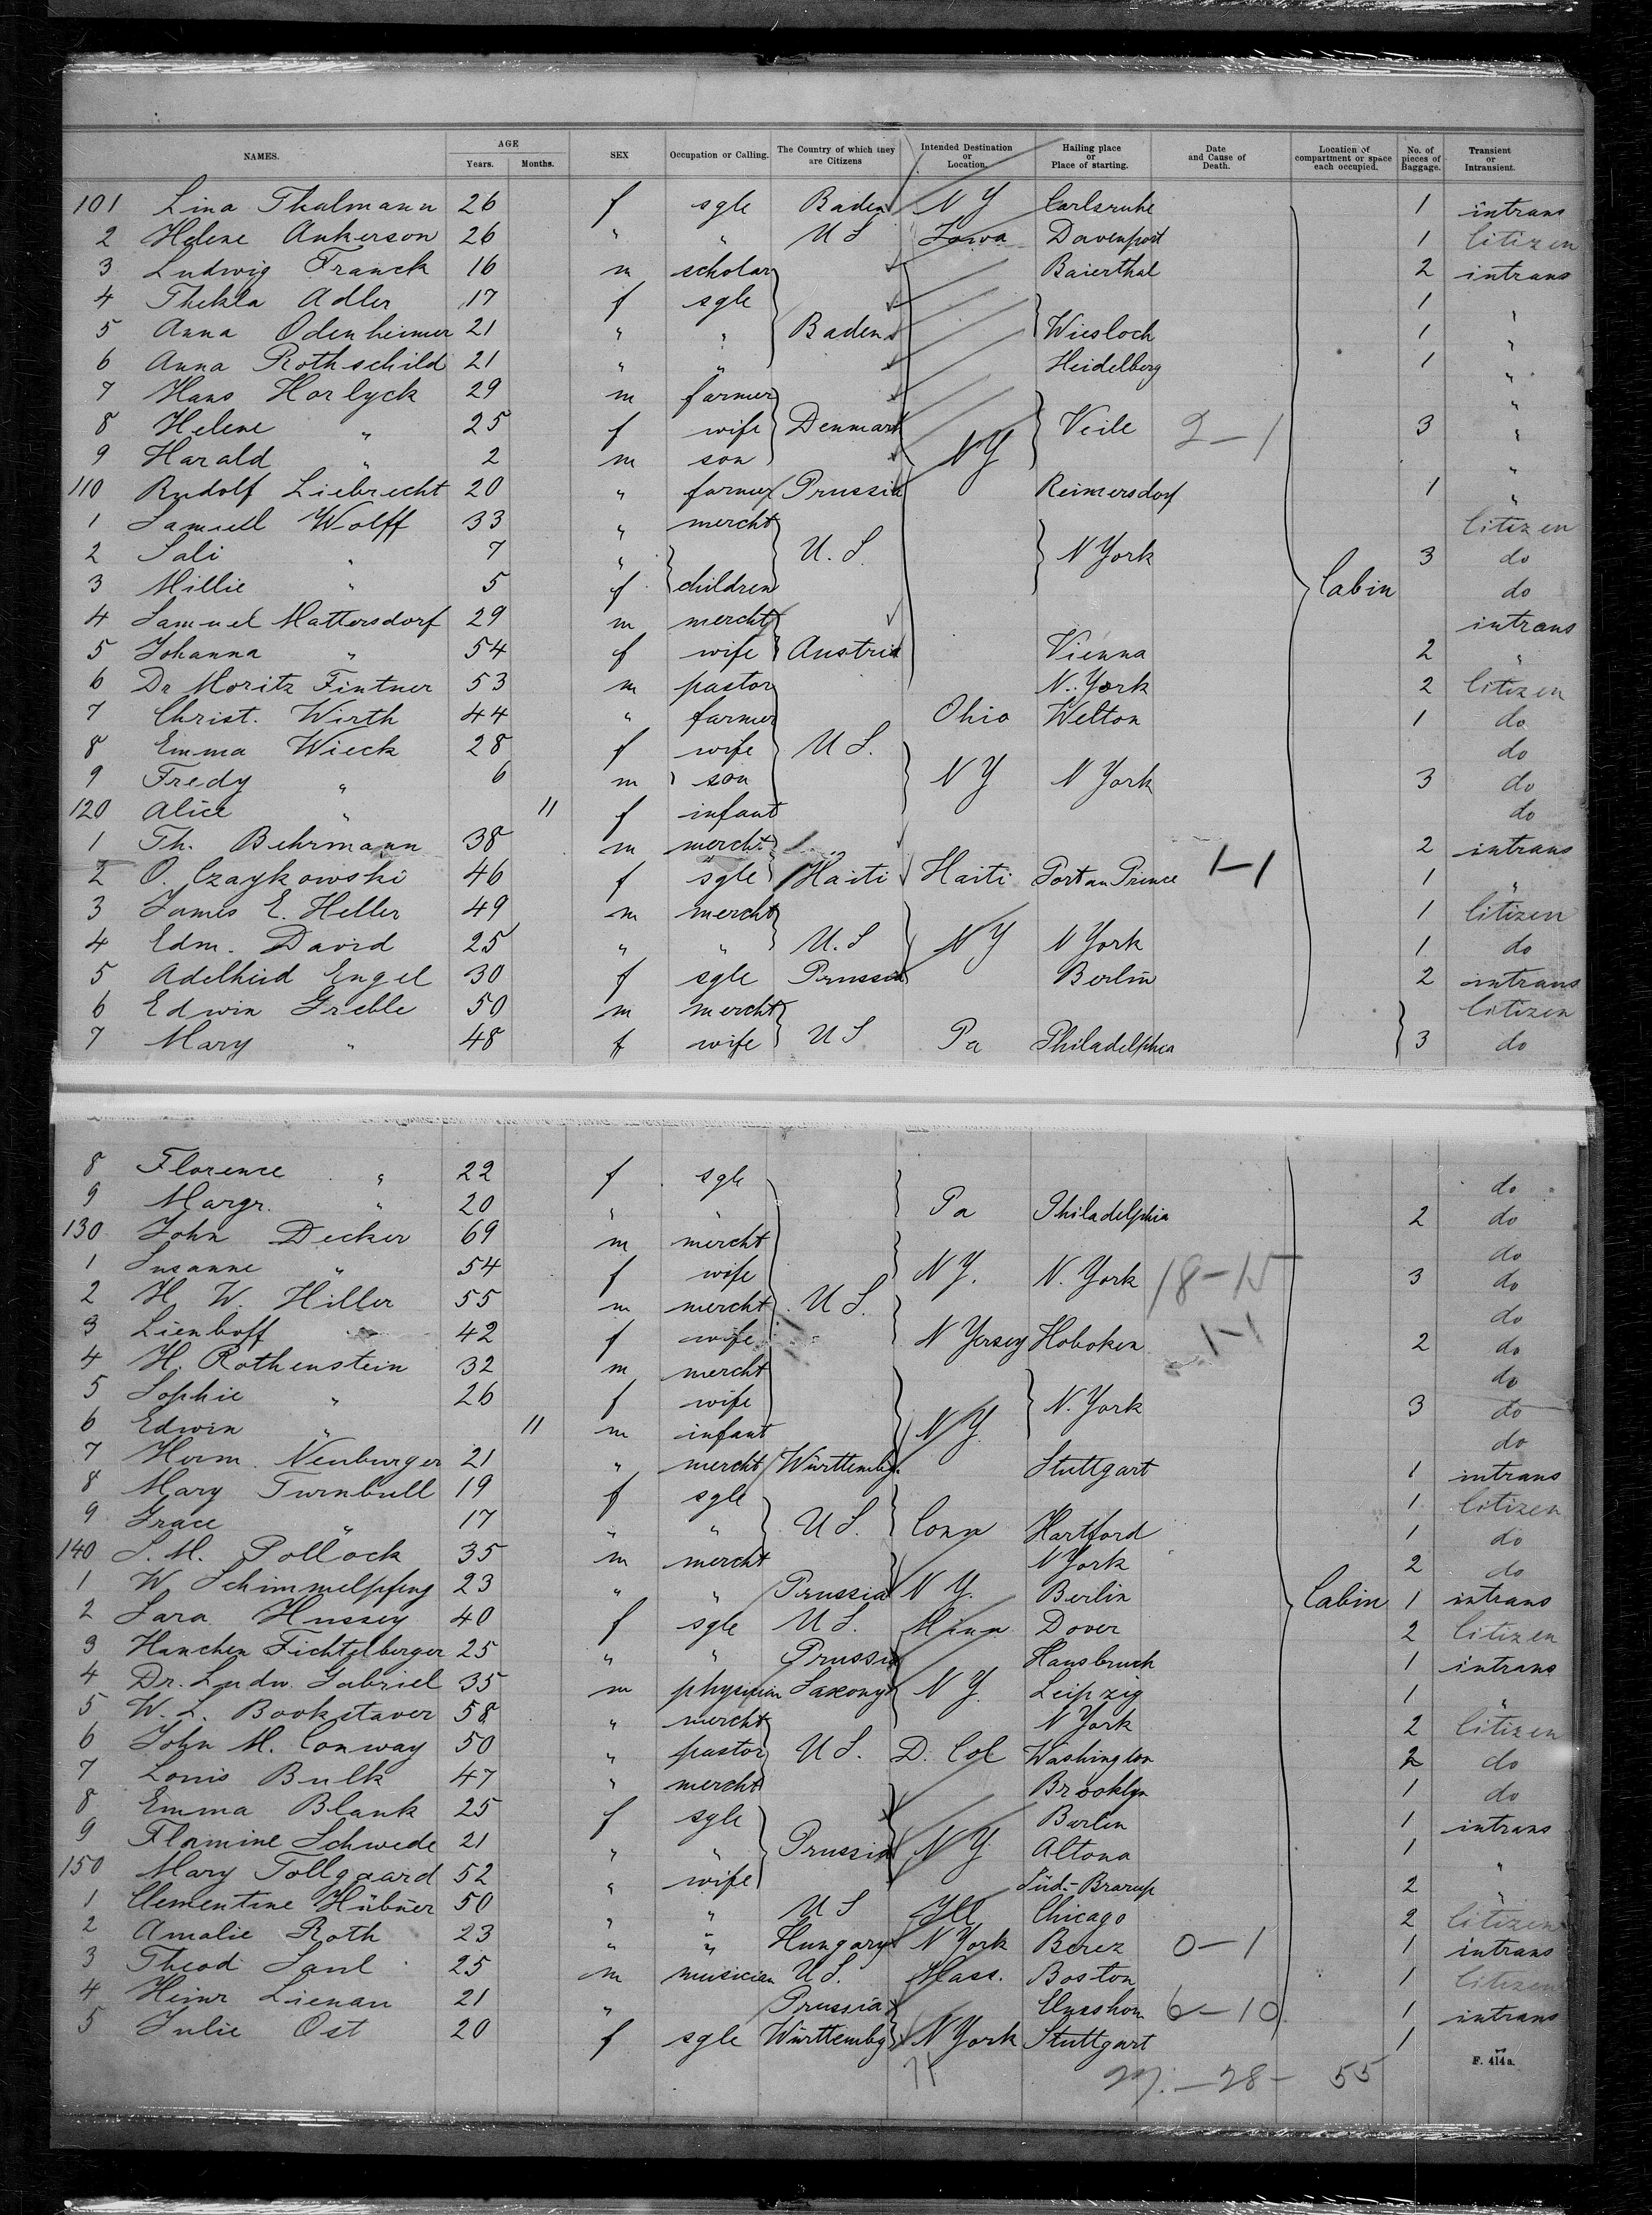 NAMES. AGE Years. Months. SEX Occupation or Calling. The Country of which they are Citizens Intended Destination or Location. Hailing place or Place of starting. Date and Cause of Death. Location of compartment or space each occupied. No. of pieces of Baggage. Transient or Intransient.
101 Lina Thalmann 26 f sgle Baden N Y Carlsruhe 1 intrans
2 Helene Ankerson 26 " " U S Iowa Davenport 1 Citizen
3 Ludwig Franck 16 m scholar Baierthal 2 intrans
4 Thekla Adler 17 f sgle 1 "
5 Anna Odenheimer 21 " " Baden Wiesloch 1 "
6 Anna Rothschild 21 " " Heidelberg 1 "
7 Hans Horlyck 29 m farmer "
8 Helene " 25 f wife Denmark Veile 2-1 3 "
9 Harald " 2 m son N Y "
110 Rudolf Liebrecht 20 " farmer Prussia Reimersdorf 1 "
1 Samuel Wolff 33 " mercht Citizen
2 Sali " 7 " U.S. N York 3 do
3 Millie " 5 f children Cabin do
4 Samuel Mattersdorf 29 m mercht intrans
5 Johanna " 54 f wife Austria Vienna 2 "
6 Dr Moritz Fintner 53 m pastor N. York 2 Citizen
7 Christ. Wirth 44 " farmer Ohio Welton 1 do
8 Emma Wieck 28 f wife U S. do
9 Fredy " 6 m son N Y N York 3 do
120 Alice " 11 f infant do
1 Th. Behrmann 38 m mercht 2 intrans
2 O. Czaykowski 46 f sgle Haiti Haiti Port au Prince 1-1 1 "
3 James E. Heller 49 m mercht 1 Citizen
4 Edm. David 25 " " U.S N Y N York 1 do
5 Adelheid Engel 30 f sgle Prussia Berlin 2 intrans
6 Edwin Greble 50 m mercht Citizen
7 Mary " 48 f wife U S Pa Philadelphia 3 do
8 Florence " 22 f sgle do
9 Margr. " 20 " " Pa Philadelphia 2 do
130 John Decker 69 m mercht do
1 Susanne " 54 f wife N Y. N. York 18-15 3 do
2 H. W. Hiller 55 m mercht U S. do
3 " 42 f wife N Yersey Hoboken 1-1 2 do
4 H. Rothenstein 32 m mercht do
5 Sophie " 26 f wife N. York 3 do
6 Edwin " 11 m infant N Y do
7 Herm. Neuburger 21 " mercht Württembg. Stuttgart 1 intrans
8 Mary Turnbull 19 f sgle 1 Citizen
9 Grace " 17 " " U S. Conn Hartford 1 do
140 S. M. Pollock 35 m mercht N York 2 do
1 W. Schimmelpfeng 23 " " Prussia N Y. Berlin Cabin 1 intrans
2 Sara Hussey 40 f sgle U S. Minn Dover 2 Citizen
3 Hanchen Fichtelberger 25 " " Prussia Hausbruch 1 intrans
4 Dr. Ludw. Gabriel 35 m physician Saxony N Y. Leipzig 1 "
5 W. L. Bookstaver 58 " mercht N York 2 Citizen
6 John M. Conway 50 " pastor U S. D. Col Washington 2 do
7 Louis Bulk 47 " mercht Brooklyn 1 do
8 Emma Blank 25 f sgle Berlin 1 intrans
9 Flormine Schwede 21 " " Prussia N Y Altona 1 "
150 Mary Tollgaard 52 " wife Süd-Brarup 2 "
1 Clementine Hübner 50 " " U S Ill Chicago 2 Citizen
2 Amalie Roth 23 " " Hungary N York Berez 0-1 1 intrans
3 Theod Saul 25 m musician U S. Mass. Boston 1 Citizen
4 Heinr Lienau 21 " Prussia 6-10 1 intrans
5 Julie Ost 20 f sgle Württembg N York Stuttgart 1
F. 414a.
27. -28- 55